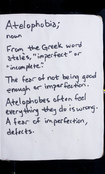 Atelophobia;
noun
From the Greek word
atelès, "imperfect" or
"incomplete."
The fear of not being good
enough or imperfection.
Atelophobes often feel
everything they do is wrong.
A fear of imperfection,
defects.